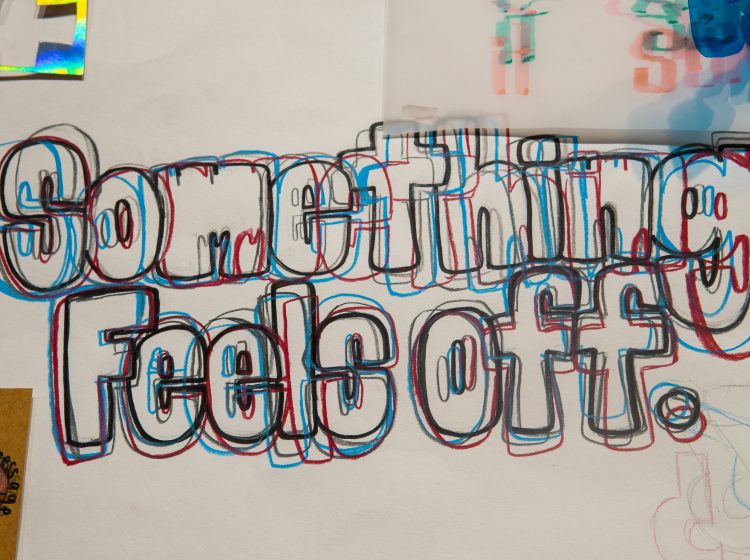 Something
Feels off.